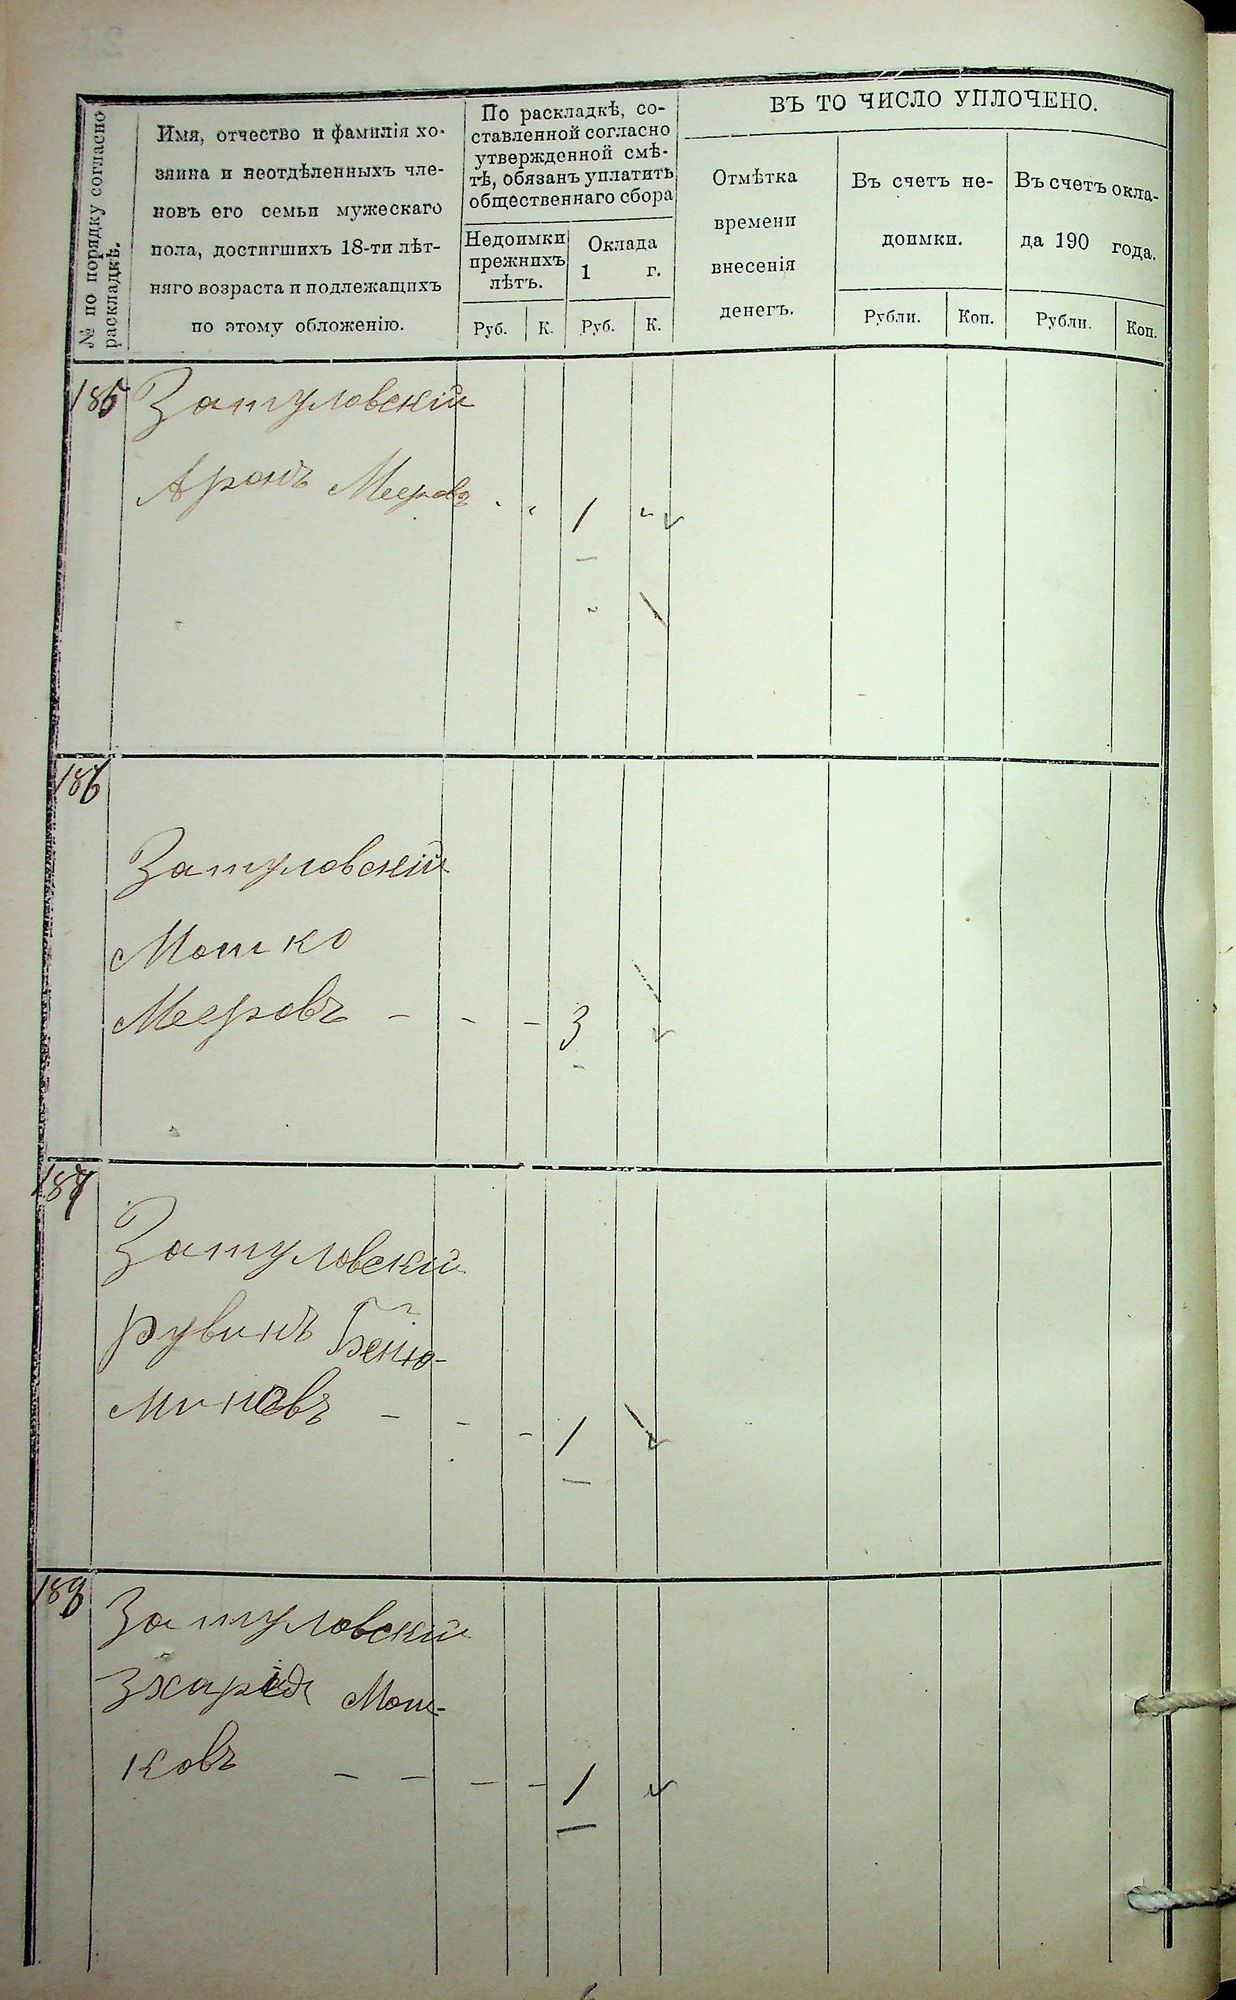 ВЪ ТО ЧИСЛО УПЛОЧЕНО.
№ по порядку согласно
раскладкѣ.
Имя, отчество и фамилія хо-
зяина и неотдѣленныхъ чле-
новъ его семьи мужескаго
пола, достигшихъ 18-ти лѣт-
няго возраста и подлежащихъ
по этому обложенію.
По раскладкѣ, со-
ставленной согласно
утвержденной смѣ-
тѣ, обязанъ уплатить
общественнаго сбора
Недоимки
прежнихъ
лѣтъ.
Оклада
1 г.
Руб. К. Руб. К.
Отмѣтка
времени
внесенія
денегъ.
Въ счетъ не-
доимки.
Рубли. Коп.
Въ счетъ окла-
да 190 года.
Рубли. Коп.
185 Затуловскій
Аронъ Мееровъ 1
186
Затуловскій
Мошко
Мееровъ - - - 3
187
Затуловскій
Рувинъ Беню-
миновъ - - - 1
188 Затуловскій
Мош-
ковъ - - - - 1